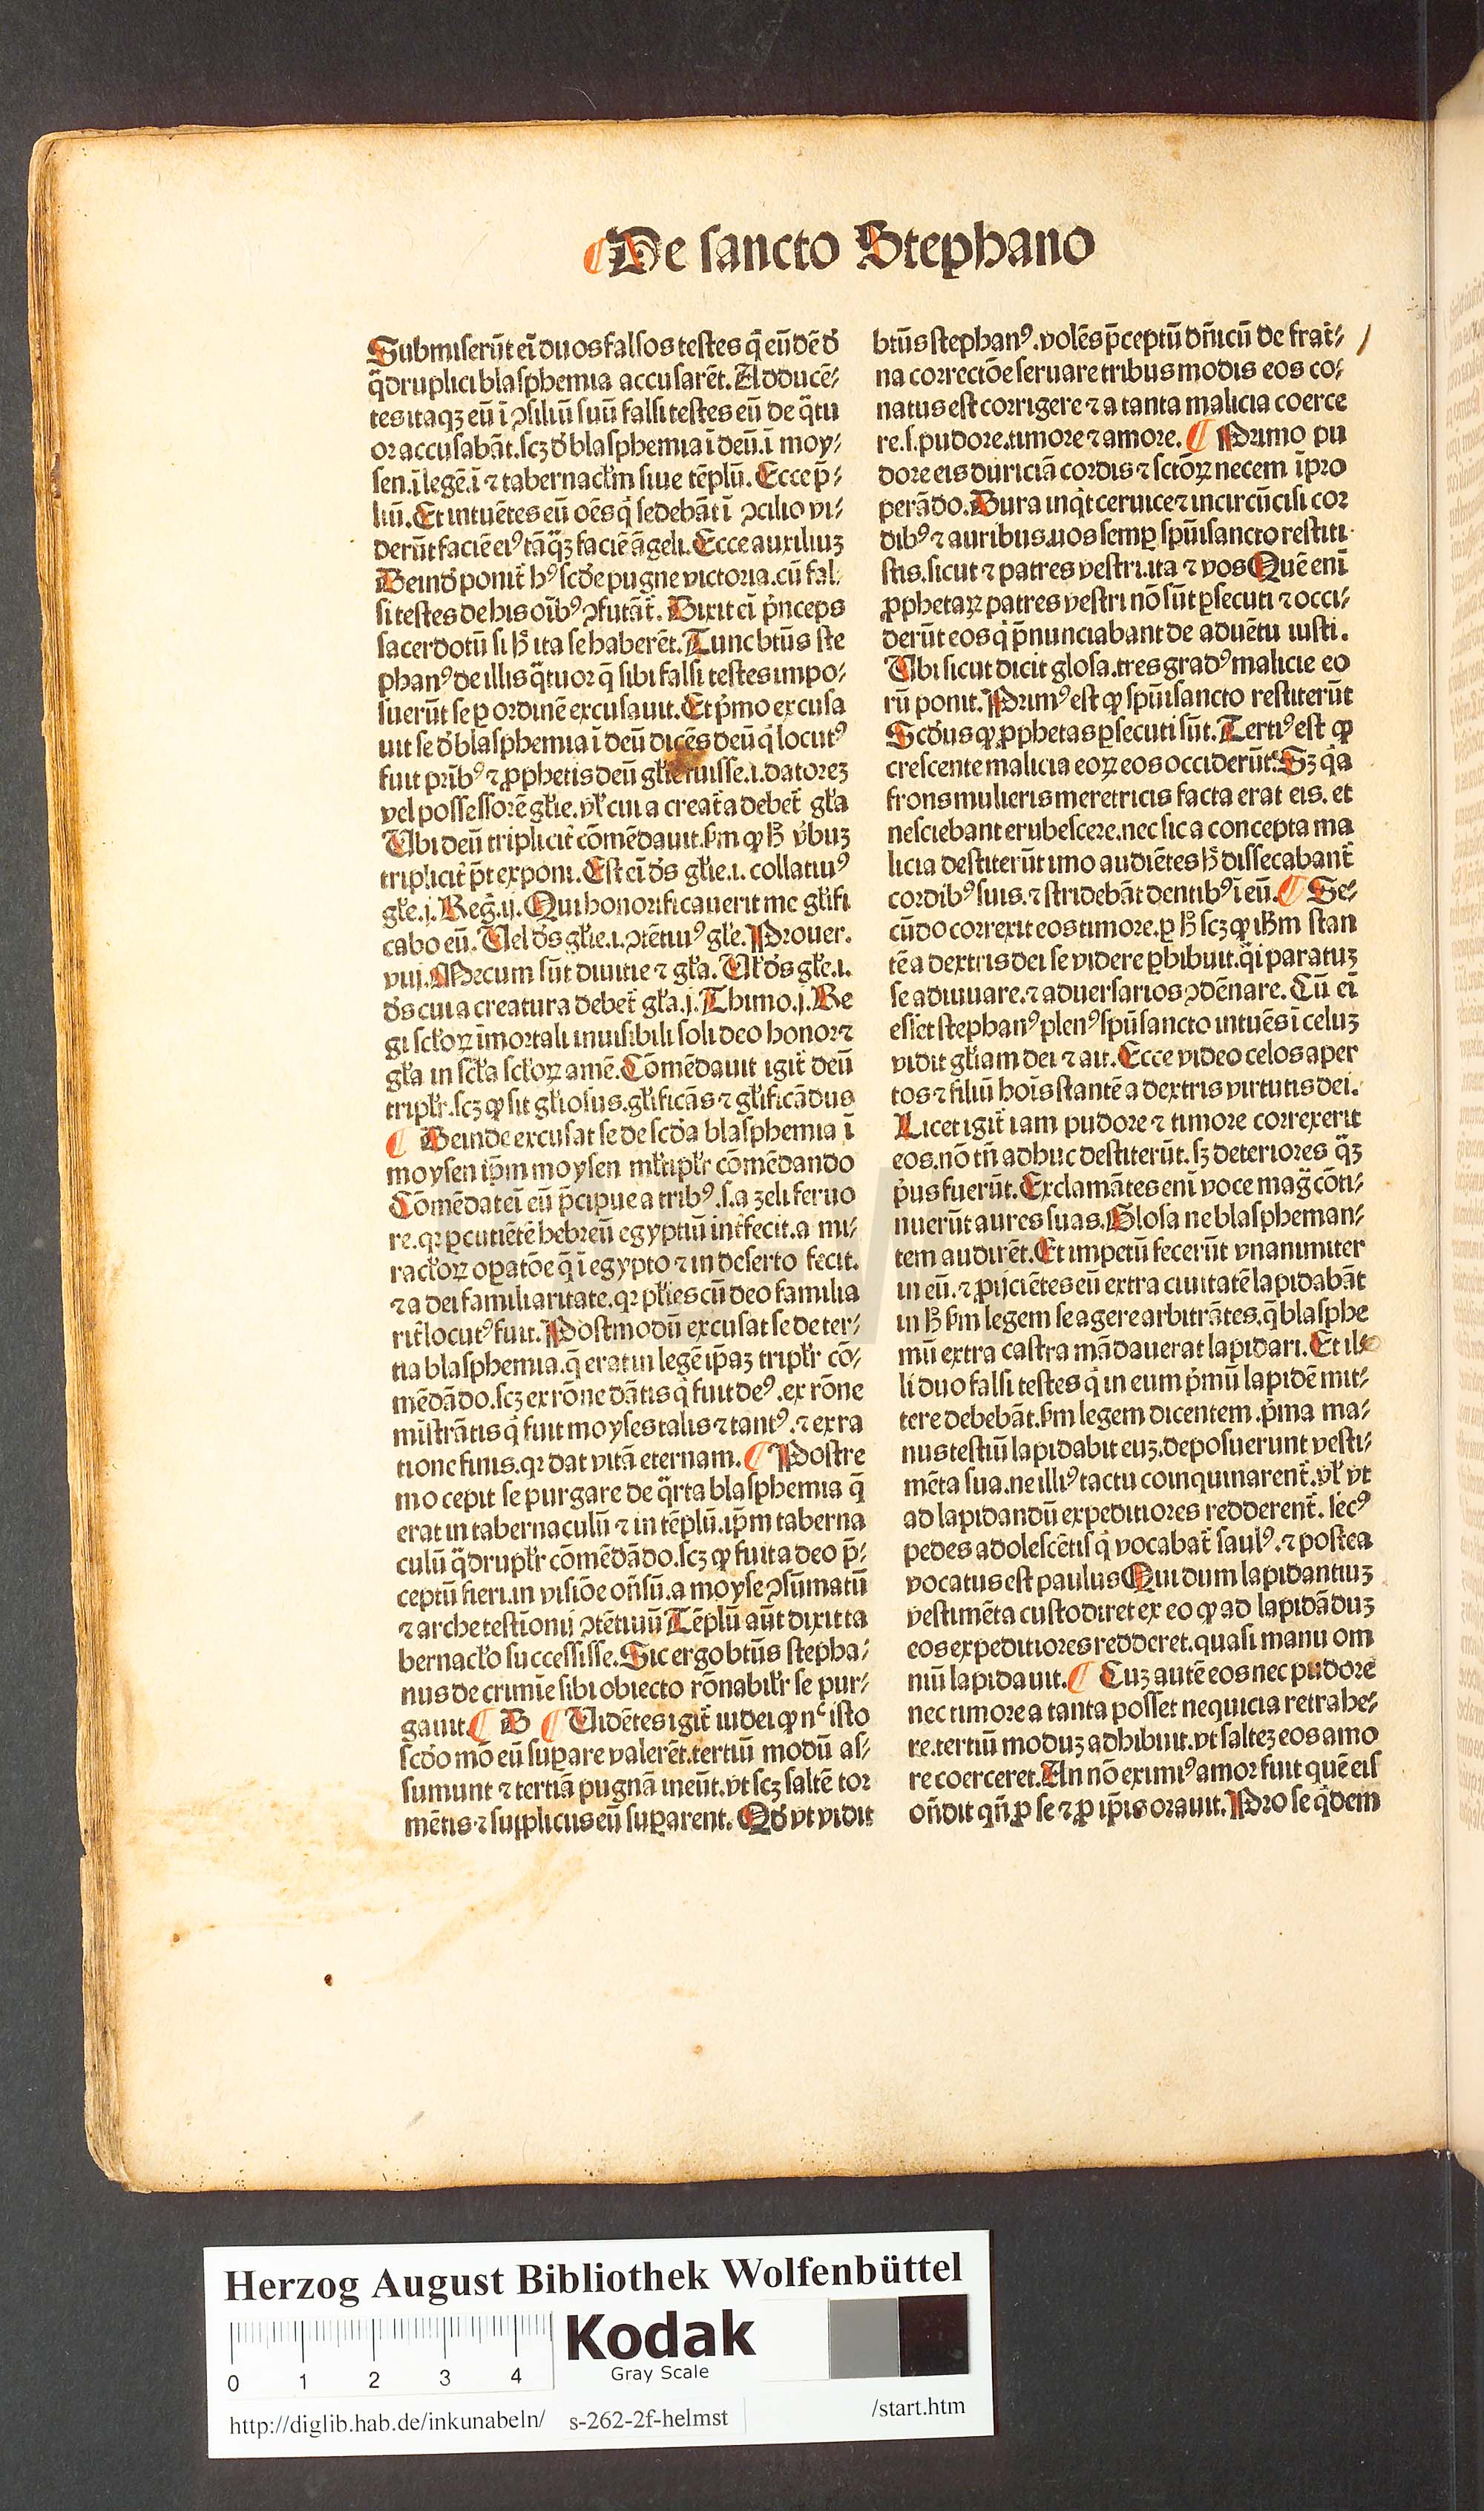 De sancto Stephano
Submiserūt eī duos falsos testes q̄ eūdē d̓
q̈druplici blasphemia accusarēt. Adducē⸗
tes itaqꝫ eū ī ꝯsiliū suū falsi testes eū de q̈tu
or accusabāt.scꝫ d̓ blasphemia ī deū.ī moy⸗
sen.ī legē.ī ⁊ tabernacłm siue tēplū. Ecce p̄⸗
liū. Et intuētes eū oēs q̇ sedebāt ī ꝯcilio vi⸗
derūt faciē eiꝰ tāq̈ꝫ faciē āgeli. Ecce auxiliuꝫ
Deind̓ ponit̄ hꝰ scd̓e pugne victoria.cū fal
si testes de his oībꝰ ꝯfutāt̄. Dixit eī p̓nceps
sacerdotū si h̄ ita se haberēt. Tunc btūs ste
phanꝰ de illis q̈tuor q̄ sibi falsi testes impo⸗
suerūt se ꝑ ordinē excusauit. Et p̓mo excusa
uit se d̓ blasphemia ī deū dicēs deū q̇ locutꝰ
fuit prībꝰ ⁊ ꝓphetis deū głie fuisse.i.datoreꝫ
vel possessorē głie.vł cui a creat̄a debet̄ gła
Ubi deū triplicit̄ cōmēdauit.ẜm ꝙ h̄ v̓buꝫ
triplicit̄ p̄t exponi. Est eī d̓s głie.i. collatiuꝰ
głe.j. Reḡ.ij. Qui honorificauerit me głifi
cabo eū. Uel d̓s głie.i.ꝯtētiuꝰ głe. Prouer.
viij. Mecum sūt diuitie ⁊ gła. Uł d̓s głe.i.
d̓s cui a creatura debet̄ gła.j. Thimo.j. Re
gi scłoꝝ īmortali inuisibili soli deo honor ⁊
gła in scła scłoꝝ amē. Cōmēdauit igit̄ deū
triplr̄.scꝫ ꝙ sit głiosus.głificās ⁊ głificādus
¶ Deinde excusat se de scd̓a blasphemia ī
moysen ip̄m moysen młtiplr̄ cōmēdando
Cōmēdat eī eū p̄cipue a tribꝰ.s.a zeli feruo
re.qꝛ ꝑcutiētē hebreū egyptiū int̄fecit.a mi⸗
racłoꝝ oꝑatōe q̄ ī egypto ⁊ in deserto fecit.
⁊ a dei familiaritate.qꝛ płies cū deo familia
rit̄ locutꝰ fuit. Postmodū excusat se de ter⸗
tia blasphemia.q̄ erat in legē ip̄aꝫ triplr̄ cō⸗
mēdādo.scꝫ ex rōne dātis q̇ fuit deꝰ.ex rōne
mīstrātis q̇ fuit moyses talis ⁊ tantꝰ.⁊ ex ra
tione finis.qꝛ dat vitā eternam. ¶ Postre
mo cepit se purgare de q̈rta blasphemia q̄
erat in tabernaculū ⁊ in tēplū.ip̄m taberna
culū q̈druplr̄ cōmēdādo.scꝫ ꝙ fuit a deo p̄⸗
ceptū fieri.in visiōe on̄sū.a moyse ꝯsūmatū
⁊ arche testīonij ꝯtētiuū Tēplū aūt dixit ta
bernacło successisse. Sic ergo btūs stepha⸗
nus de crimīe sibi obiecto rōnabilr̄ se pur⸗
gauit. ¶ B ¶ Uidētes igit̄ iudei ꝙ nͨ isto
scd̓o mō eū suꝑare valerēt.tertiū modū as⸗
sumunt ⁊ tertiā pugnā ineūt.vt scꝫ saltē tor
mētis ⁊ supplicijs eū suꝑarent. Qd̓ vt vidit
btūs stephanꝰ.volēs p̄ceptū dn̄icū de frat̄⸗
na correctōe seruare tribus modis eos co⸗
natus est corrigere ⁊ a tanta malicia coerce
re.s.pudore.timore ⁊ amore. ¶ Primo pu
dore eis duriciā cordis ⁊ sctōꝝ necem īpro
perādo. Dura inq̇t ceruice ⁊ incircūcisi cor
dibꝰ ⁊ auribus.uos semꝑ spūi sancto restiti
stis.sicut ⁊ patres vestri.ita ⁊ vos Quē enī
ꝓphetaꝝ patres vestri nō sūt ꝑsecuti ⁊ occi⸗
derūt eos q̇ p̄nunciabant de aduētu iusti.
Ubi sicut dicit glosa.tres gradꝰ malicie eo
rū ponit. Primꝰ est ꝙ spūi sancto restiterūt
Scd̓us ꝙ ꝓphetas ꝑsecuti sūt. Tertiꝰ est ꝙ
crescente malicia eoꝝ eos occiderūt. Sꝫ q̇a
frons mulieris meretricis facta erat eis. et
nesciebant erubescere.nec sic a concepta ma
licia destiterūt imo audiētes h̄ dissecabant̄
cordibꝰ suis.⁊ stridebāt dentibꝰ ī eū. ¶ Se⸗
cūdo correxit eos timore.ꝑ h̄ scꝫ ꝙ ih̄m stan
tē a dextris dei se videre ꝑhibuit.q̇i paratuꝫ
se adiuuare.⁊ aduersarios ꝯdēnare. Cū eī
esset stephanꝰ plenꝰ spū sancto intuēs ī celuꝫ
vidit głiam dei ⁊ ait. Ecce video celos aper
tos ⁊ filiū hoīs stantē a dextris virtutis dei.
Licet igit̄ iam pudore ⁊ timore correxerit
eos.nō tn̄ adhuc destiterūt.sꝫ deteriores q̈ꝫ
p̓us fuerūt. Exclamātes enī voce mag̈ cōti⸗
nuerūt aures suas. Glosa ne blaspheman⸗
tem audirēt. Et impetū fecerūt vnanimiter
in eū.⁊ ꝓijciētes eū extra ciuitatē lapidabāt
in h̄ ẜm legem se agere arbitrātes.q̄ blasphe
mū extra castra mādauerat lapidari. Et il⸗
li duo falsi testes q̇ in eum p̓mū lapidē mit⸗
tere debebāt.ẜm legem dicentem.p̓ma ma⸗
nus testiū lapidabit euꝫ.deposuerunt vesti⸗
mēta sua.ne illiꝰ tactu coinquinarent̄.vł vt
ad lapidandū expeditiores redderent̄. secꝰ
pedes adolescētis q̇ vocabat̄ saulꝰ.⁊ postea
vocatus est paulus Qui dum lapidantiuꝫ
vestimēta custodiret ex eo ꝙ ad lapidāduꝫ
eos expeditiores redderet.quasi manu om
niū lapidauit. ¶ Cuꝫ autē eos nec pudore
nec timore a tanta posset nequicia retrahe⸗
re.tertiū moduꝫ adhibuit.vt salteꝫ eos amo
re coerceret. An nō eximiꝰ amor fuit quē eis
on̄dit qn̄ ꝓ se ⁊ ꝓ ip̄is orauit. Pro se q̇dem
Herzog August Bibliothek Wolfenbüttel
0 1 2 3 4
Kodak
Gray Scale
http://diglib.hab.de/inkunabeln/ s-262-2f-helmst /start.htm